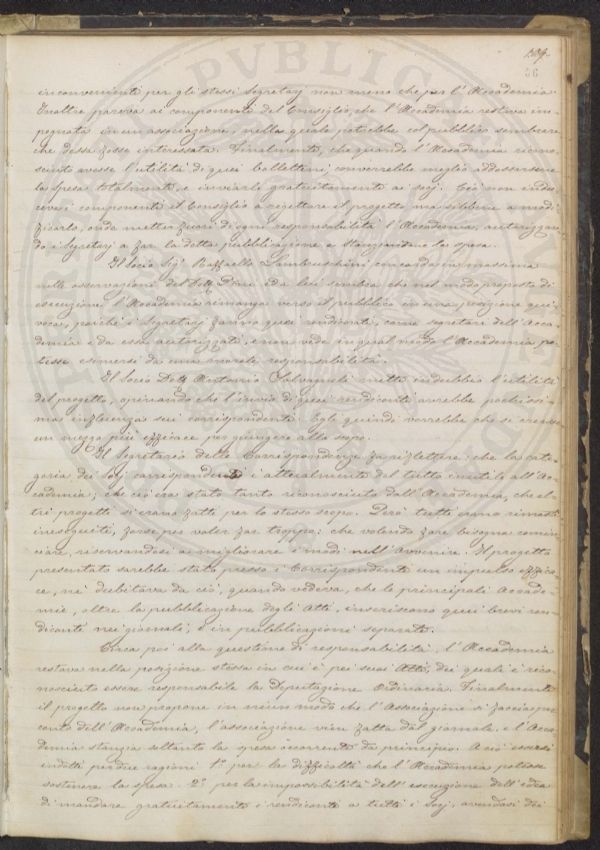 109.
56
inconvenienti per gli stessi Segretarj non meno che per l'Accademia.
Inoltre pareva ai componenti del Consiglio, che l'Accademia restava im-
pegnata in un associazione, nella quale potrebbe col pubblico sembrare
che dessa fosse interessata. Finalmente, che quando l'Accademia ricono-
sciuto avesse l'utilità di quei bullettini, converrebbe meglio addossarsene
la spesa totalmente, e inviarli gratuitamente ai socj. Ciò non indu-
ceva i componenti il Consiglio a rigettare il progetto ma sibbene a modi-
ficarlo, onde metter fuori di ogni responsabilità l'Accademia, autorizzan-
do i Segretarj a far la detta pubblicazione e stanziandone la spesa.
Il Socio Sig.r Raffaello Lambruschini concorda in massima
nelle osservazione del Dott. e da lui sembra che nel modo proposto di
esecuzione l'Accademia rimanga verso il pubblico in una posizione equi-
voca, poichè i Segretarj fanno quei rendiconti, come segretarj dell'Acca-
demia e da essa autorizzati, e non vede in qual modo l'Accademia po-
tesse esimersi da una morale responsabilità.
Il Socio Dott. Antonio Salvagnoli mette in dubbio l'utilità
del progetto, opinando che l'invio di quei rendiconti avrebbe pochissi-
ma influenza sui corrispondenti. Egli quindi vorrebbe che si cercasse
un mezzo più efficace per giungere allo scopo.
Il Segretario delle Corrispondenze fa riflettere: che la cate-
goria dei Socj corrispondenti è attualmente del tutto inutile all'Ac-
cademia; che ciò era stato tanto riconosciuto dall'Accademia, che al-
tri progetti si erano fatti per lo stesso scopo. Però tutti erano rimasti
ineseguiti, forse per voler far troppo: che volendo fare bisogna comin-
ciare, riservandosi a migliorare i modi nell'avvenire. Il progetto
presentato sarebbe stato presso i Corrispondenti un impulso effica-
ce, nè dubitava da ciò, quando vedeva, che le principali Accade-
mie, oltre la pubblicazione degli Atti, inseriscono quei brevi ren-
diconti nei giornali, o in pubblicazioni separate.
Circa poi alla questione di responsabilità, l'Accademia
restava nella posizione stessa in cui è pei suoi Atti, dei quali è rico-
nosciuto essere responsabile la Deputazione Ordinaria. Finalmente
il progetto non propone in niun modo che l'Associazione si faccia per
conto dell'Accademia, l'associazione vien fatta dal giornale, e l'Acca-
demia stanzia soltanto la spesa occorrente da principio. A ciò essersi
indotti per due ragioni 1.o per la difficoltà che l'Accademia potesse
sostenere la spesa. 2.o per la impossibilità dell'esecuzione dell'idea
di mandare gratuitamente i rendiconti a tutti i Socj, avendosi dei